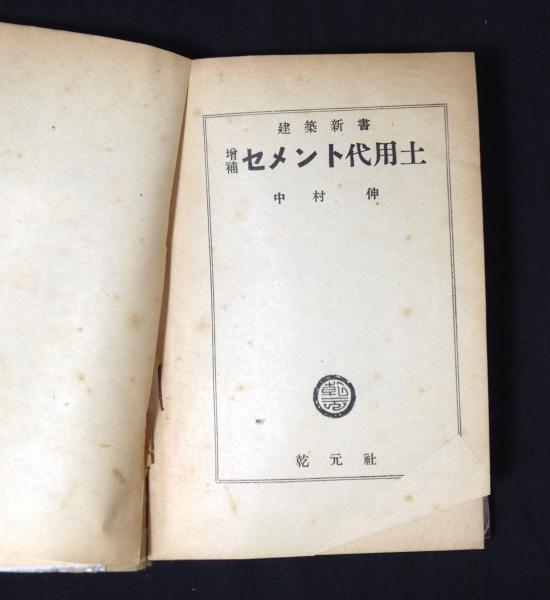 建築新書
増補 セメント代用土
中村 伸
乾元
乾元社